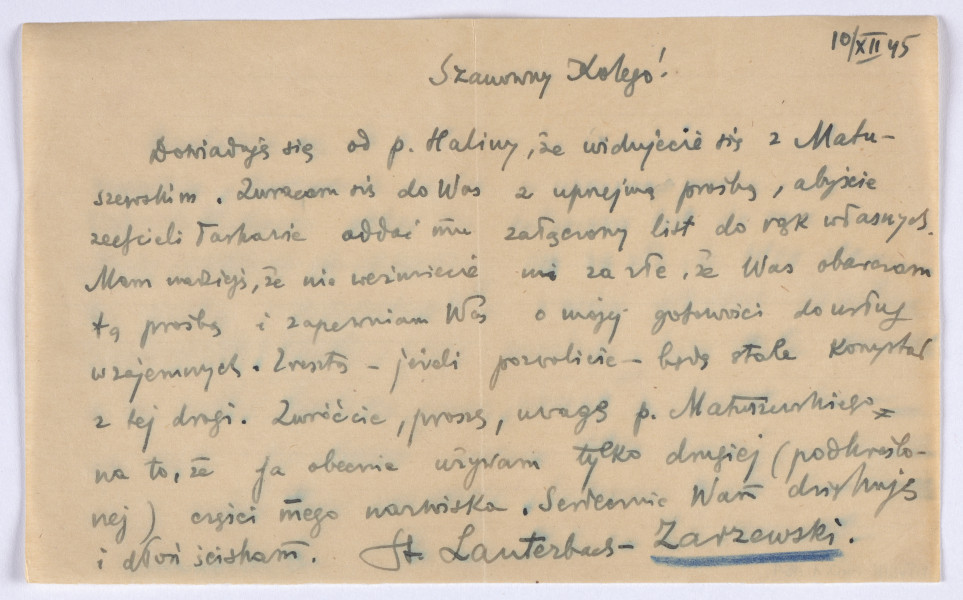 10/XII 45
Szanowny Kolego!
Dowiaduję się od p. Haliny, że widujecie się z Matu-
szewskim. Zwracam się do Was z uprzejmą prośbą, abyście
zechcieli łaskawie oddać mu załączony list do rąk własnych.
Mam nadzieję, że nie weźmiecie mi za złe, że Was obarczam
tą prośbą i zapewniam Was o mojej gotowości do usług
wzajemnych. Zresztą – jeżeli pozwolicie – będę stale korzystał
z tej drogi. Zwróćcie, proszę, uwagę p. Matuszewskiego
na to, że ja obecnie używam tylko drugiej (podkreślo-
nej) części mego nazwiska. Serdecznie Wam dziękuję
i dłoń ściskam. St. Lauterbach – Zarzewski.